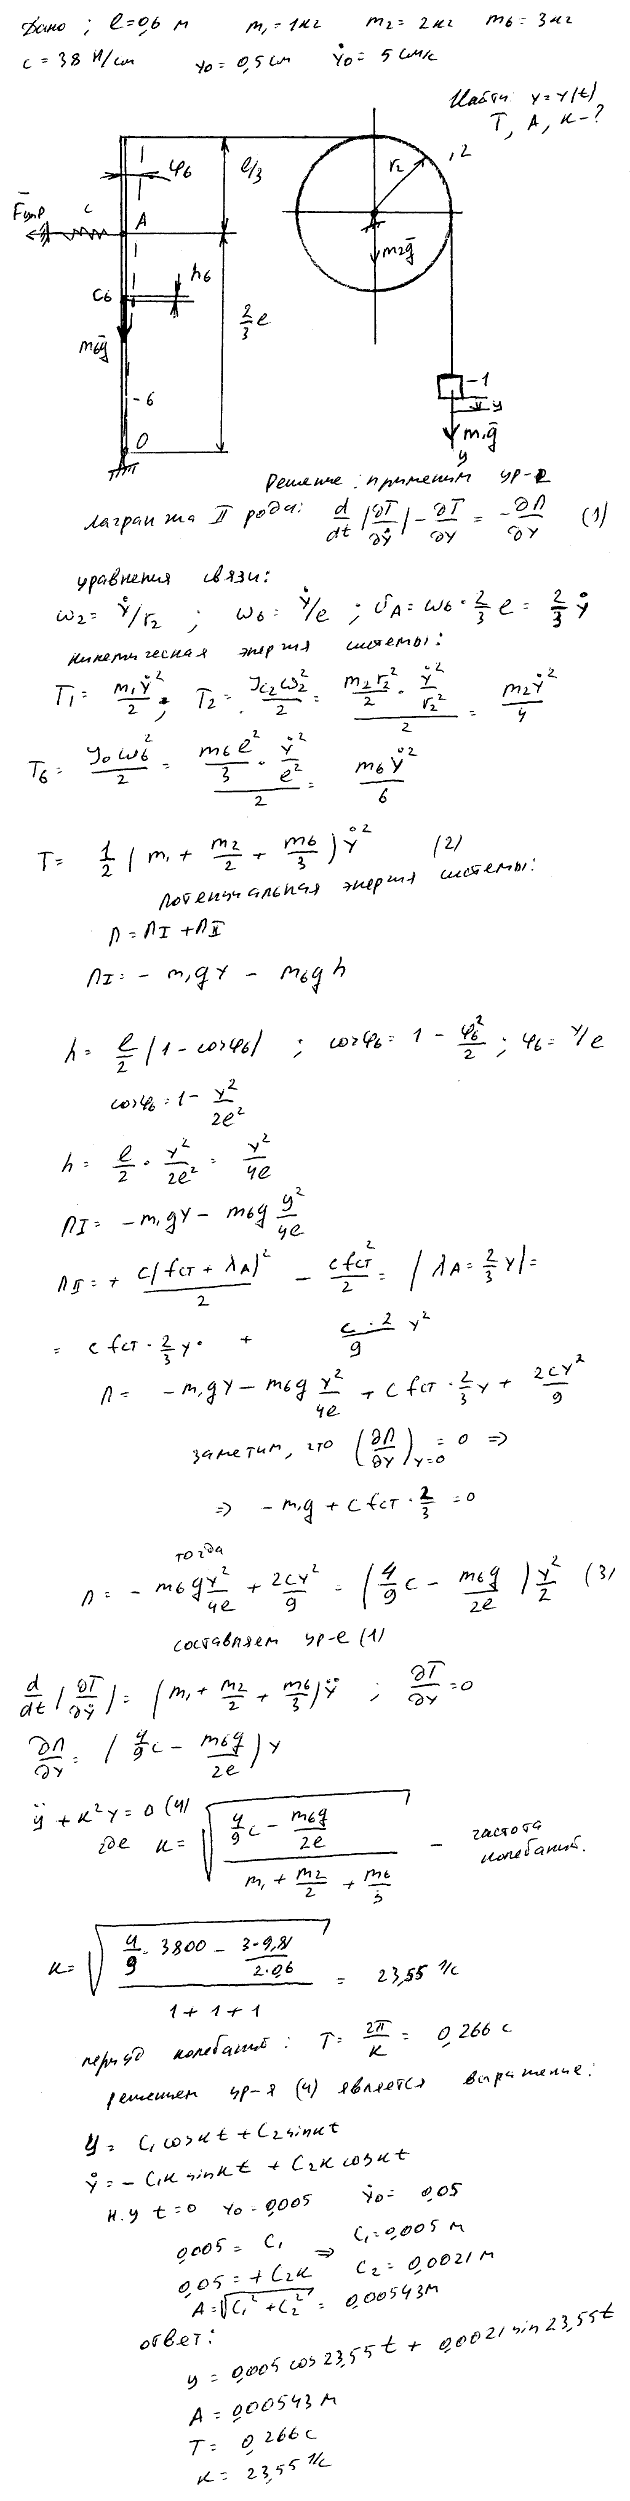 Дано: l=0,6 м m₁=1кг m₂=2кг m₆=3кг
c=38 Н/см y₀=0,5см ẏ₀=5см/с
Найти y=y(t)
T, A, к-?
φ₆ l/3 r₂ , 2
F̄упр c A
m₂ḡ
C₆ h₆ 2/3 l
m₆ḡ
-6
-1
y
O m₁ḡ
y
Решение: применим ур-е
Лагранжа II рода: d/dt(∂T/∂ẏ) - ∂T/∂y = -∂П/∂y (1)
уравнения связи:
ω₂=ẏ/r₂ ; ω₆=ẏ/l ; υA=ω₆·2/3 l = 2/3 ẏ
кинетическая энергия системы:
T₁= m₁ẏ²/2 ; T₂= Jc₂ω₂²/2 = (m₂r₂²/2 · ẏ²/r₂²)/2 = m₂ẏ²/4
T₆= J₀ω₆²/2 = (m₆l²/3 · ẏ²/l²)/2 = m₆ẏ²/6
T= 1/2 (m₁ + m₂/2 + m₆/3) ẏ² (2)
потенциальная энергия системы:
П=ПI+ПII
ПI= - m₁gy - m₆gh
h= l/2 (1-cosφ₆) ; cosφ₆= 1 - φ₆²/2 ; φ₆=y/l
cosφ₆=1- y²/2l²
h= l/2 · y²/2l² = y²/4l
ПI= -m₁gy - m₆g y²/4l
ПII= + c(fст + λA)²/2 - cfст²/2 = (λA= 2/3 y)=
= cfст·2/3 y + c·2/9 y²
П= -m₁gy - m₆g y²/4l + cfст·2/3 y + 2cy²/9
заметим, что (∂П/∂y)y=0 = 0 ⇒
⇒ -m₁g + cfст·2/3 =0
тогда
П= - m₆gy²/4l + 2cy²/9 = (4/9 c - m₆g/2l) y²/2 (3)
составляем ур-е (1)
d/dt(∂T/∂ẏ)= (m₁ + m₂/2 + m₆/3)ÿ ; ∂T/∂y=0
∂П/∂y= (4/9 c - m₆g/2l) y
ÿ + к²y=0 (4)
где к= √((4/9 c - m₆g/2l)/(m₁ + m₂/2 + m₆/3)) - частота колебаний.
к= √((4/9 · 3800 - 3·9,81/2·0,6)/(1+1+1)) = 23,55 1/с
период колебаний: T= 2π/к = 0,266 с
решением ур-я (4) является выражение:
y= C₁cosкt + C₂sinкt
ẏ= - C₁к sinкt + C₂к cosкt
н.у t=0 y₀=0,005 ẏ₀= 0,05
0,005= C₁ ⇒ C₁=0,005 м
0,05=+C₂к C₂=0,0021 м
A=√(C₁²+C₂²) = 0,00543м
ответ:
y= 0,005 cos 23,55 t + 0,0021 sin 23,55t
A= 0,00543 м
T= 0,266с
к= 23,55 1/с